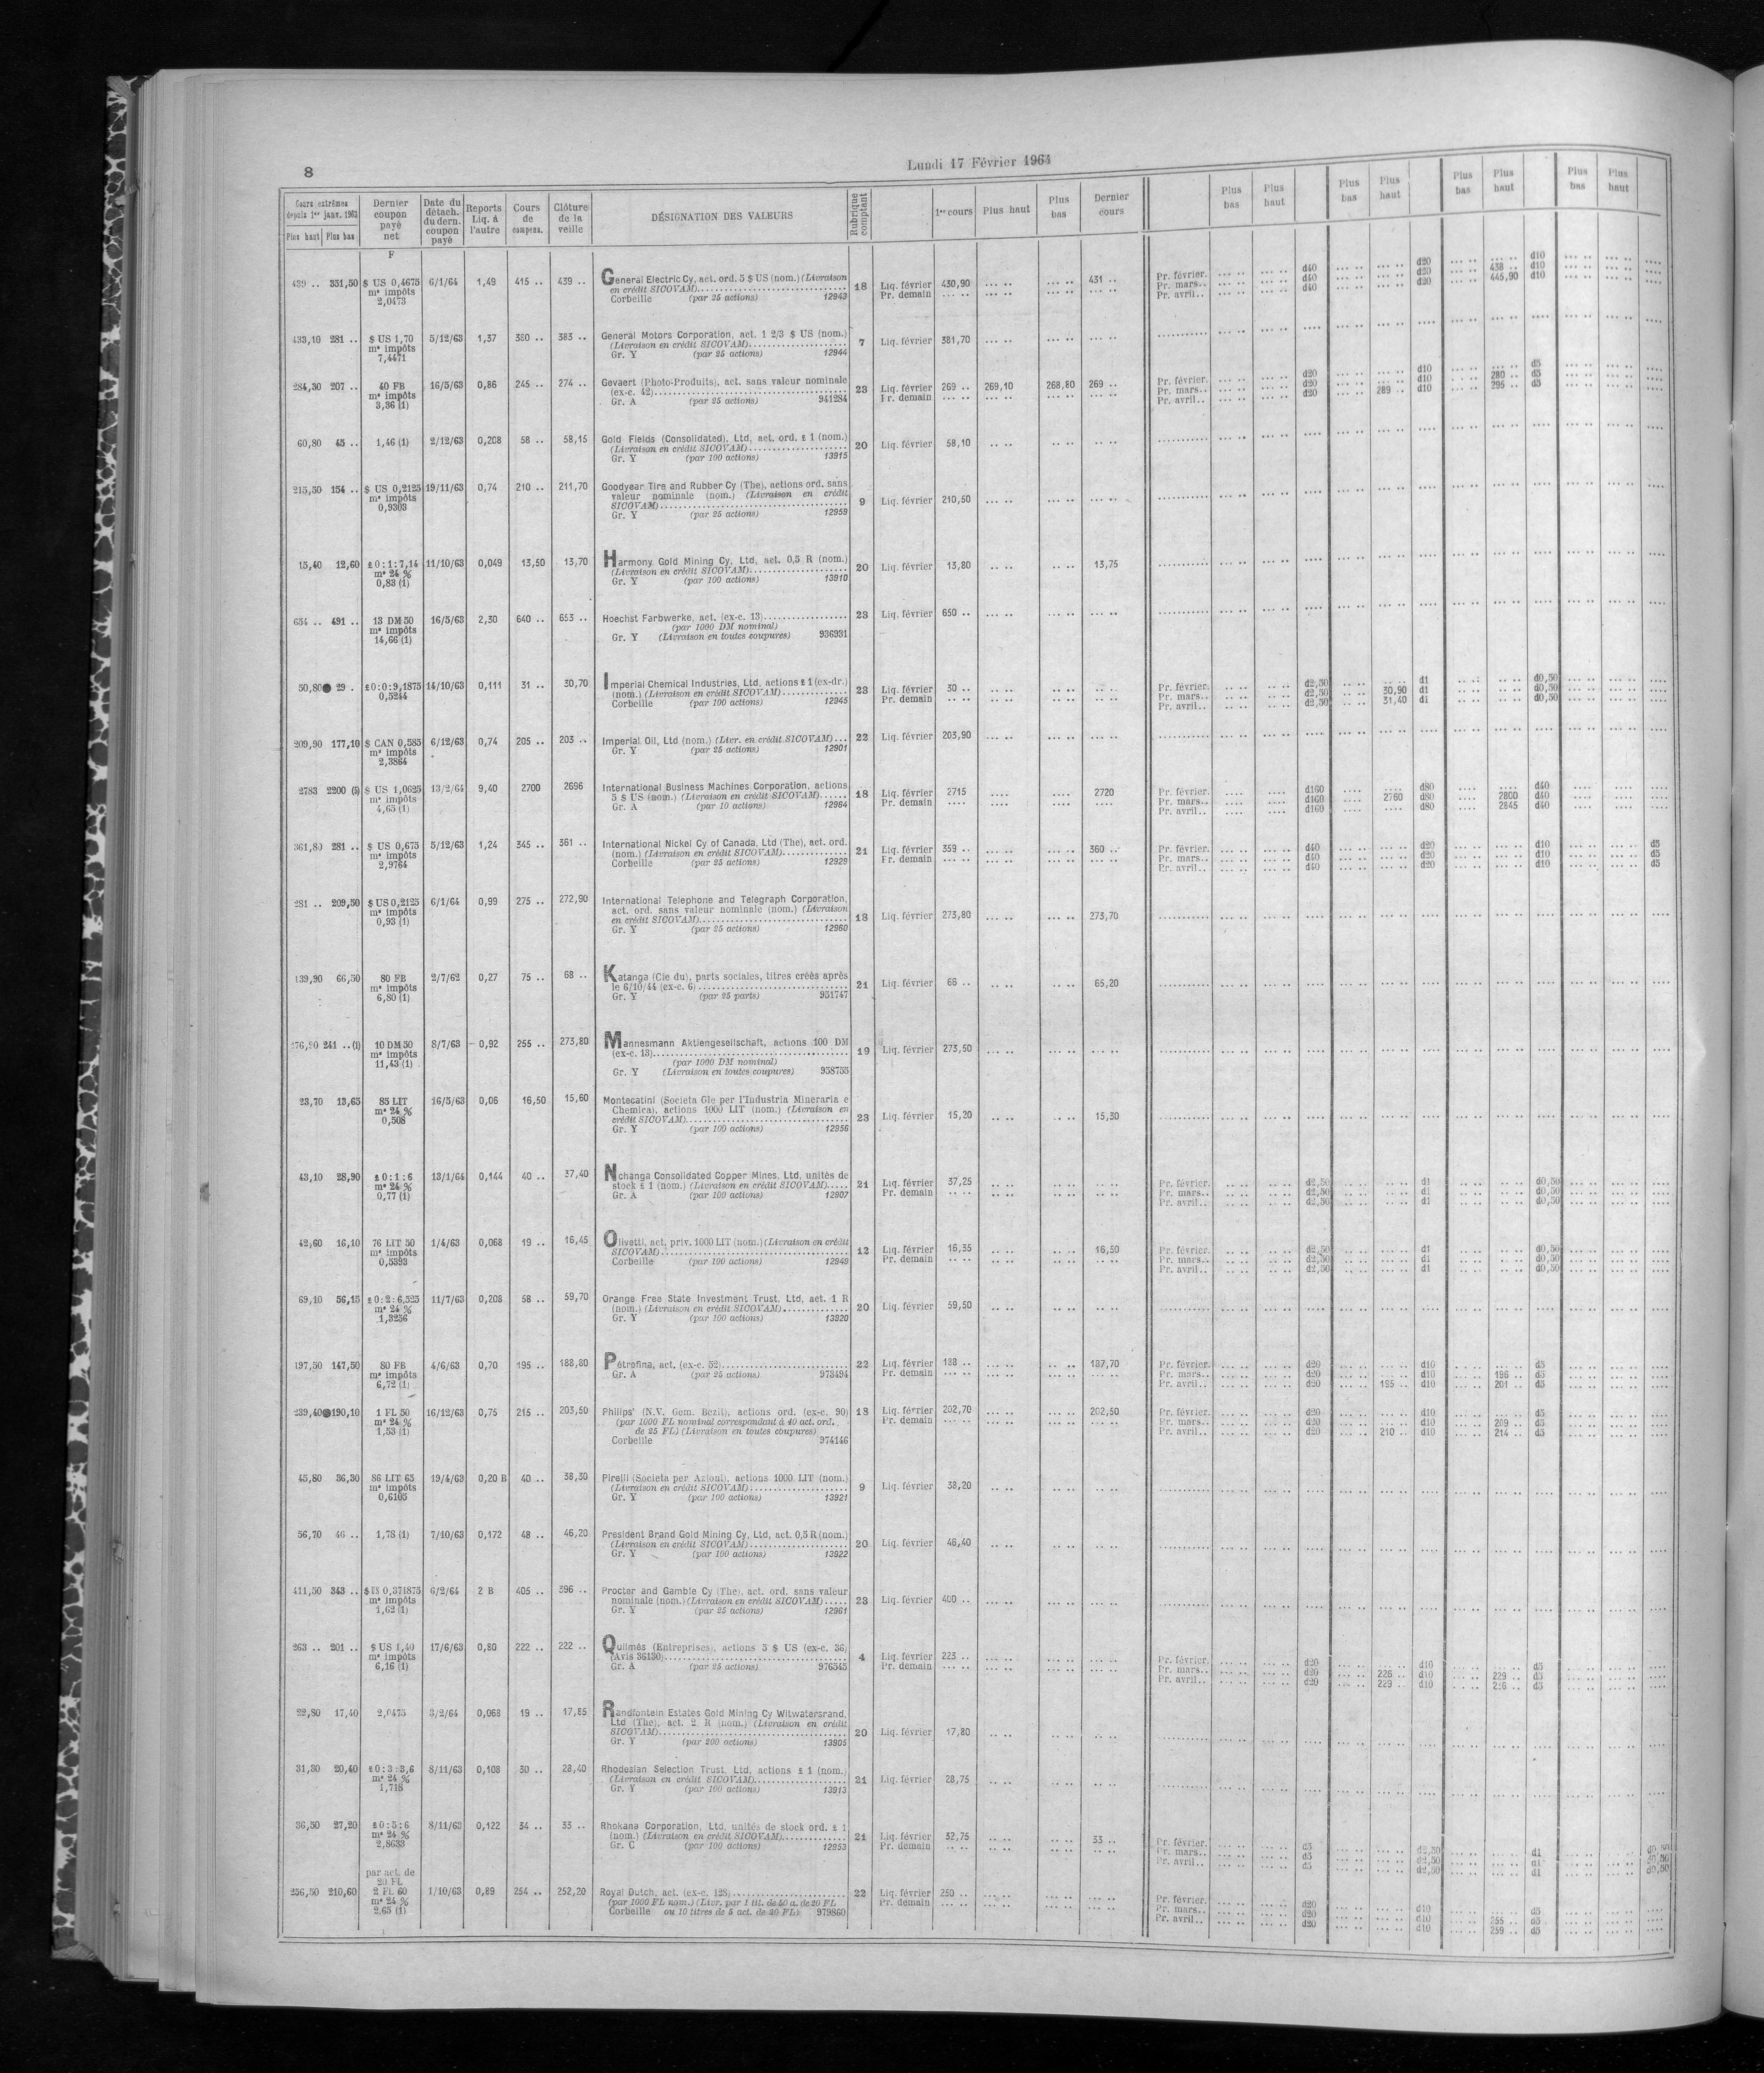 8
Lundi 17 Février 1964
Cours extrêmes depuis 1er janv. 1963 Plus haut Plus bas
Dernier coupon payé net
Date du détach. du dern. coupon payé
Reports Liq. à l'autre
Cours de compens.
Clôture de la veille
DÉSIGNATION DES VALEURS
Rubrique comptant
1er cours
Plus haut
Plus bas
Dernier cours
Plus bas Plus haut Plus bas Plus haut Plus bas Plus haut Plus bas Plus haut
F
439 .. 331,50 $ US 0,4675 6/1/64 1,49 415 .. 439 .. General Electric Cy, act. ord. 5 $ US (nom.) (Livraison
mˢ impôts en crédit SICOVAM) 18 Liq. février 430,90 ... .. ... .. 431 .. Pr. février. d40 d20 d10
2,0473 Corbeille (par 25 actions) 12943 Pr. demain Pr. mars.. d40 d20 438 .. d10
Pr. avril.. d40 d20 445,90 d10
433,10 281 .. $ US 1,70 5/12/63 1,37 380 .. 383 .. General Motors Corporation, act. 1 2/3 $ US (nom.)
mˢ impôts (Livraison en crédit SICOVAM) 7 Liq. février 381,70
7,4471 Gr. Y (par 25 actions) 12944
284,30 207 .. 40 FB 16/5/63 0,86 245 .. 274 .. Gevaert (Photo-Produits), act. sans valeur nominale
mˢ impôts (ex-c. 42) 23 Liq. février 269 .. 269,10 268,80 269 .. Pr. février. d20 d10 d5
3,36 (1) Gr. A (par 25 actions) 941284 Pr. demain Pr. mars.. d20 d10 280 .. d5
Pr. avril.. d20 289 .. d10 295 .. d5
60,80 45 .. 1,46 (1) 2/12/63 0,208 58 .. 58,15 Gold Fields (Consolidated), Ltd, act. ord. £ 1 (nom.)
(Livraison en crédit SICOVAM) 20 Liq. février 58,10
Gr. Y (par 100 actions) 13915
215,50 154 .. $ US 0,2125 19/11/63 0,74 210 .. 211,70 Goodyear Tire and Rubber Cy (The), actions ord. sans
mˢ impôts valeur nominale (nom.) (Livraison en crédit
0,9303 SICOVAM) 9 Liq. février 210,50
Gr. Y (par 25 actions) 12959
15,40 12,60 £ 0:1:7,14 11/10/63 0,049 13,50 13,70 Harmony Gold Mining Cy, Ltd, act. 0,5 R (nom.)
mˢ 24 % (Livraison en crédit SICOVAM) 20 Liq. février 13,80 13,75
0,83 (1) Gr. Y (par 100 actions) 13910
654 .. 491 .. 13 DM 50 16/5/63 2,30 640 .. 653 .. Hoechst Farbwerke, act. (ex-c. 13) 23 Liq. février 650 ..
mˢ impôts (par 1000 DM nominal)
14,66 (1) Gr. Y (Livraison en toutes coupures) 936931
50,80 29 . £0:0:9,1875 14/10/63 0,111 31 .. 30,70 Imperial Chemical Industries, Ltd, actions £ 1 (ex-dr.)
0,5244 (nom.) (Livraison en crédit SICOVAM) 23 Liq. février 30 .. Pr. février. d2,50 d1 d0,50
Corbeille (par 100 actions) 12945 Pr. demain Pr. mars.. d2,50 30,90 d1 d0,50
Pr. avril.. d2,50 31,40 d1 d0,50
209,90 177,10 $ CAN 0,585 6/12/63 0,74 205 .. 203 .. Imperial Oil, Ltd (nom.) (Livr. en crédit SICOVAM) 22 Liq. février 203,90
mˢ impôts Gr. Y (par 25 actions) 12901
2,3864
2783 2200 (5) $ US 1,0625 13/2/64 9,40 2700 2696 International Business Machines Corporation, actions
mˢ impôts 5 $ US (nom.) (Livraison en crédit SICOVAM) 18 Liq. février 2715 2720 Pr. février. d160 d80 d40
4,65 (1) Gr. A (par 10 actions) 12964 Pr. demain Pr. mars.. d160 2760 d80 2800 d40
Pr. avril.. d160 d80 2845 d40
361,80 281 .. $ US 0,675 5/12/63 1,24 345 .. 361 .. International Nickel Cy of Canada, Ltd (The), act. ord.
mˢ impôts (nom.) (Livraison en crédit SICOVAM) 21 Liq. février 359 .. 360 .. Pr. février. d40 d20 d10 d5
2,9764 Corbeille (par 25 actions) 12929 Pr. demain Pr. mars.. d40 d20 d10 d5
Pr. avril.. d40 d20 d10 d5
281 .. 209,50 $ US 0,2125 6/1/64 0,99 275 .. 272,90 International Telephone and Telegraph Corporation,
mˢ impôts act. ord. sans valeur nominale (nom.) (Livraison
0,93 (1) en crédit SICOVAM) 18 Liq. février 273,80 273,70
Gr. Y (par 25 actions) 12960
139,90 66,50 80 FB 2/7/62 0,27 75 .. 68 .. Katanga (Cie du), parts sociales, titres créés après
mˢ impôts le 6/10/44 (ex-c. 6) 21 Liq. février 66 .. 65,20
6,80 (1) Gr. Y (par 25 parts) 951747
276,50 241 .. (1) 10 DM 50 8/7/63 0,92 255 .. 273,80 Mannesmann Aktiengesellschaft, actions 100 DM
mˢ impôts (ex-c. 13) 19 Liq. février 273,50
11,43 (1) (par 1000 DM nominal)
Gr. Y (Livraison en toutes coupures) 958755
23,70 13,65 85 LIT 16/5/63 0,06 16,50 15,60 Montecatini (Societa Gle per l'Industria Mineraria e
mˢ 24 % Chemica), actions 1000 LIT (nom.) (Livraison en
0,508 crédit SICOVAM) 23 Liq. février 15,20 15,30
Gr. Y (par 100 actions) 12956
43,10 28,90 £ 0:1:6 13/1/64 0,144 40 .. 37,40 Nchanga Consolidated Copper Mines, Ltd, unités de
mˢ 24 % stock £ 1 (nom.) (Livraison en crédit SICOVAM) 21 Liq. février 37,25 Pr. février. d2,50 d1 d0,50
0,77 (1) Gr. A (par 100 actions) 12907 Pr. demain Pr. mars.. d2,50 d1 d0,50
Pr. avril.. d2,50 d1 d0,50
42,60 16,10 76 LIT 50 1/4/63 0,068 19 .. 16,45 Olivetti, act. priv. 1000 LIT (nom.) (Livraison en crédit
mˢ impôts SICOVAM) 12 Liq. février 16,35 16,50 Pr. février. d2,50 d1 d0,50
0,5393 Corbeille (par 100 actions) 12949 Pr. demain Pr. mars.. d2,50 d1 d0,50
Pr. avril.. d2,50 d1 d0,50
69,10 56,15 £0:2:6,525 11/7/63 0,208 58 .. 59,70 Orange Free State Investment Trust, Ltd, act. 1 R
mˢ 24 % (nom.) (Livraison en crédit SICOVAM) 20 Liq. février 59,50
1,3256 Gr. Y (par 100 actions) 13920
197,50 147,50 80 FB 4/6/63 0,70 195 .. 188,80 Pétrofina, act. (ex-c. 52) 22 Liq. février 188 .. 187,70 Pr. février. d20 d10 d5
mˢ impôts Gr. A (par 25 actions) 973494 Pr. demain Pr. mars.. d20 d10 196 .. d5
6,72 (1) Pr. avril.. d20 195 .. d10 201 .. d5
239,40 190,10 1 FL 50 16/12/63 0,75 215 .. 203,50 Philips' (N.V. Gem. Bezit), actions ord. (ex-c. 90) 18 Liq. février 202,70 202,50 Pr. février. d20 d10 d5
mˢ 24 % (par 1000 FL nominal correspondant à 40 act. ord. Pr. demain Pr. mars.. d20 d10 209 .. d5
1,53 (1) de 25 FL) (Livraison en toutes coupures) Pr. avril.. d20 210 .. d10 214 .. d5
Corbeille 974146
45,80 36,30 86 LIT 65 19/4/63 0,20 B 40 .. 38,30 Pirelli (Societa per Azioni), actions 1000 LIT (nom.)
mˢ impôts (Livraison en crédit SICOVAM) 9 Liq. février 38,20
0,6105 Gr. Y (par 100 actions) 13921
56,70 46 .. 1,78 (1) 7/10/63 0,172 48 .. 46,20 President Brand Gold Mining Cy, Ltd, act. 0,5 R (nom.)
(Livraison en crédit SICOVAM) 20 Liq. février 46,40
Gr. Y (par 100 actions) 13922
411,50 343 .. $ US 0,371875 6/2/64 2 B 405 .. 396 .. Procter and Gamble Cy (The), act. ord. sans valeur
mˢ impôts nominale (nom.) (Livraison en crédit SICOVAM) 23 Liq. février 400 ..
1,62 (1) Gr. Y (par 25 actions) 12961
263 .. 201 .. $ US 1,40 17/6/63 0,80 222 .. 222 .. Quilmès (Entreprises), actions 5 $ US (ex-c. 36)
mˢ impôts (Avis 36130) 4 Liq. février 223 .. Pr. février. d20 d10 d5
6,16 (1) Gr. A (par 25 actions) 976345 Pr. demain Pr. mars.. d20 226 .. d10 229 .. d5
Pr. avril.. d20 229 .. d10 d5
22,80 17,40 2,0475 3/2/64 0,068 19 .. 17,85 Randfontein Estates Gold Mining Cy Witwatersrand,
Ltd (The), act. 2 R (nom.) (Livraison en crédit
SICOVAM) 20 Liq. février 17,80
Gr. Y (par 200 actions) 13905
31,80 20,40 £0:3:3,6 8/11/63 0,108 30 .. 28,40 Rhodesian Selection Trust, Ltd, actions £ 1 (nom.)
mˢ 24 % (Livraison en crédit SICOVAM) 21 Liq. février 28,75
1,718 Gr. Y (par 100 actions) 13913
36,50 27,20 £0:5:6 8/11/63 0,122 34 .. 33 .. Rhokana Corporation, Ltd, unités de stock ord. £ 1
mˢ 24 % (nom.) (Livraison en crédit SICOVAM) 21 Liq. février 32,75 33 .. Pr. février. d5 d2,50 d1 d0,50
2,8633 Gr. C (par 100 actions) 12953 Pr. demain Pr. mars.. d5 d2,50 d1 d0,50
Pr. avril.. d5 d2,50 d1 d0,50
par act. de
20 FL
256,50 210,60 2 FL 60 1/10/63 0,89 254 .. 252,20 Royal Dutch, act. (ex-c. 128) 22 Liq. février 250 .. Pr. février. d20 d10 d5
mˢ 24 % (par 1000 FL nom.) (Livr. par 1 tit. de 50 a. de 20 FL Pr. demain Pr. mars.. d20 d10 255 .. d5
2,65 (1) Corbeille ou 10 titres de 5 act. de 20 FL) 979860 Pr. avril.. d20 d10 259 .. d5